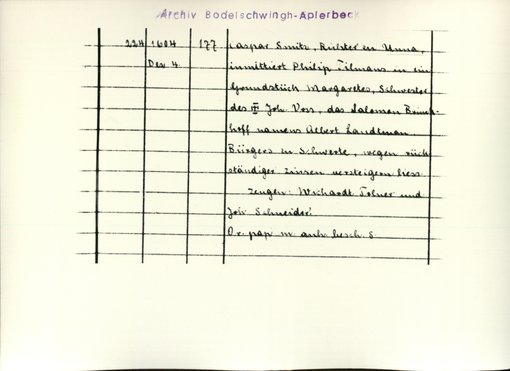 Archiv Bodelschwingh-Aplerbeck
224 1604 177 Caspar Smitz, Richter zu Unna,
Dez 4. immittiert Philip Tilmans in ein
Grundstück Margaretes, Schwester
des Joh Voss, das Salomon Brinck-
hoff namens Albert Landtman
Bürgers zu Schwerte, wegen rück
ständiger Zinsen versteigern liess
Zeugen: Wichardt Tolner und
Joh Schneider.
Or. pap m. anh. besch. S